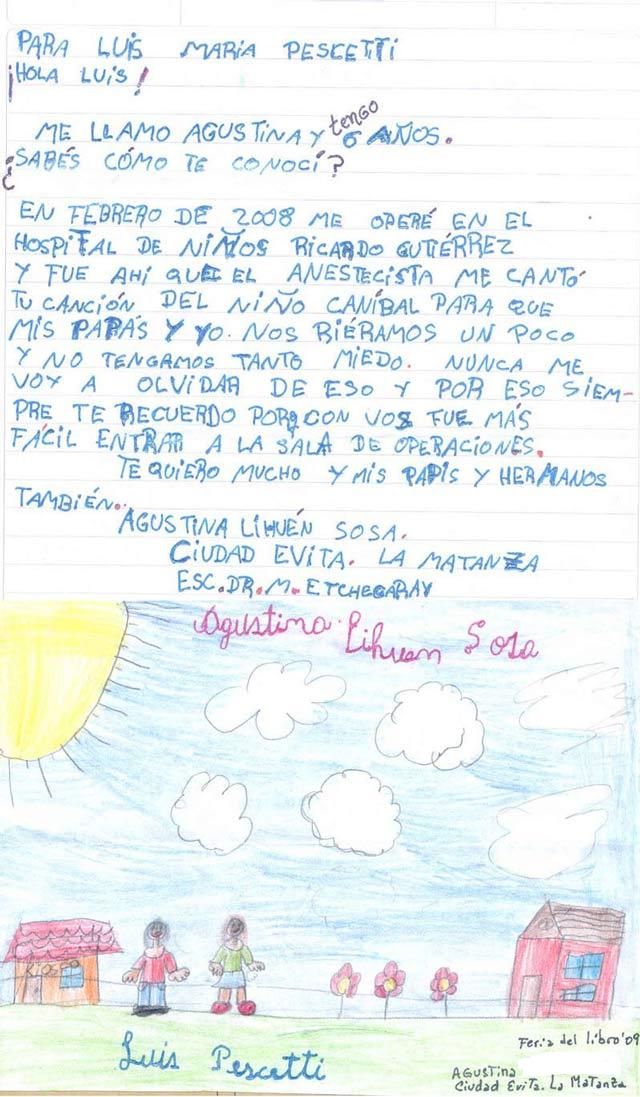 PARA LUIS MARIA PESCETTI
¡HOLA LUIS!
ME LLAMO AGUSTINA Y tengo 6 AÑOS.
¿SABÉS CÓMO TE CONOCÍ?
EN FEBRERO DE 2008 ME OPERÉ EN EL
HOSPITAL DE NIÑOS RICARDO GUTIÉRREZ
Y FUE AHÍ QUE EL ANESTECISTA ME CANTÓ
TU CANCIÓN DEL NIÑO CANÍBAL PARA QUE
MIS PAPÁS Y YO. NOS RIÉRAMOS UN POCO
Y NO TENGAMOS TANTO MIEDO. NUNCA ME
VOY A OLVIDAR DE ESO Y POR ESO SIEM-
PRE TE RECUERDO PORQ CON VOS FUE MÁS
FÁCIL ENTRAR A LA SALA DE OPERACIONES.
TE QUIERO MUCHO Y MIS PAPIS Y HERMANOS
TAMBIÉN.
AGUSTINA LIHUÉN SOSA.
CIUDAD EVITA. LA MATANZA
ESC.DR.M.ETCHEGARAY
Agustina Lihuen Sosa
KIOSCO
Luis Pescetti
Feria del libro'09
AGUSTINA
Ciudad Evita. La Matanza